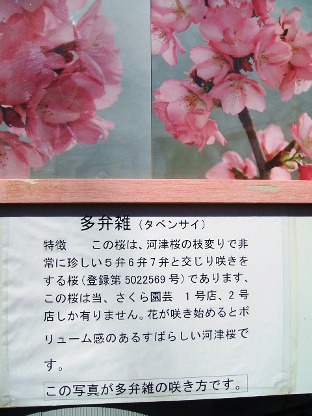 多弁雑（タベンサイ）
特徴　この桜は、河津桜の枝変りで非
常に珍しい５弁６弁７弁と交じり咲きを
する桜（登録第5022569号）であります、
この桜は当、さくら園芸　１号店、２号
店しか有りません。花が咲き始めるとボ
リューム感のあるすばらしい河津桜で
す。
この写真が多弁雑の咲き方です。